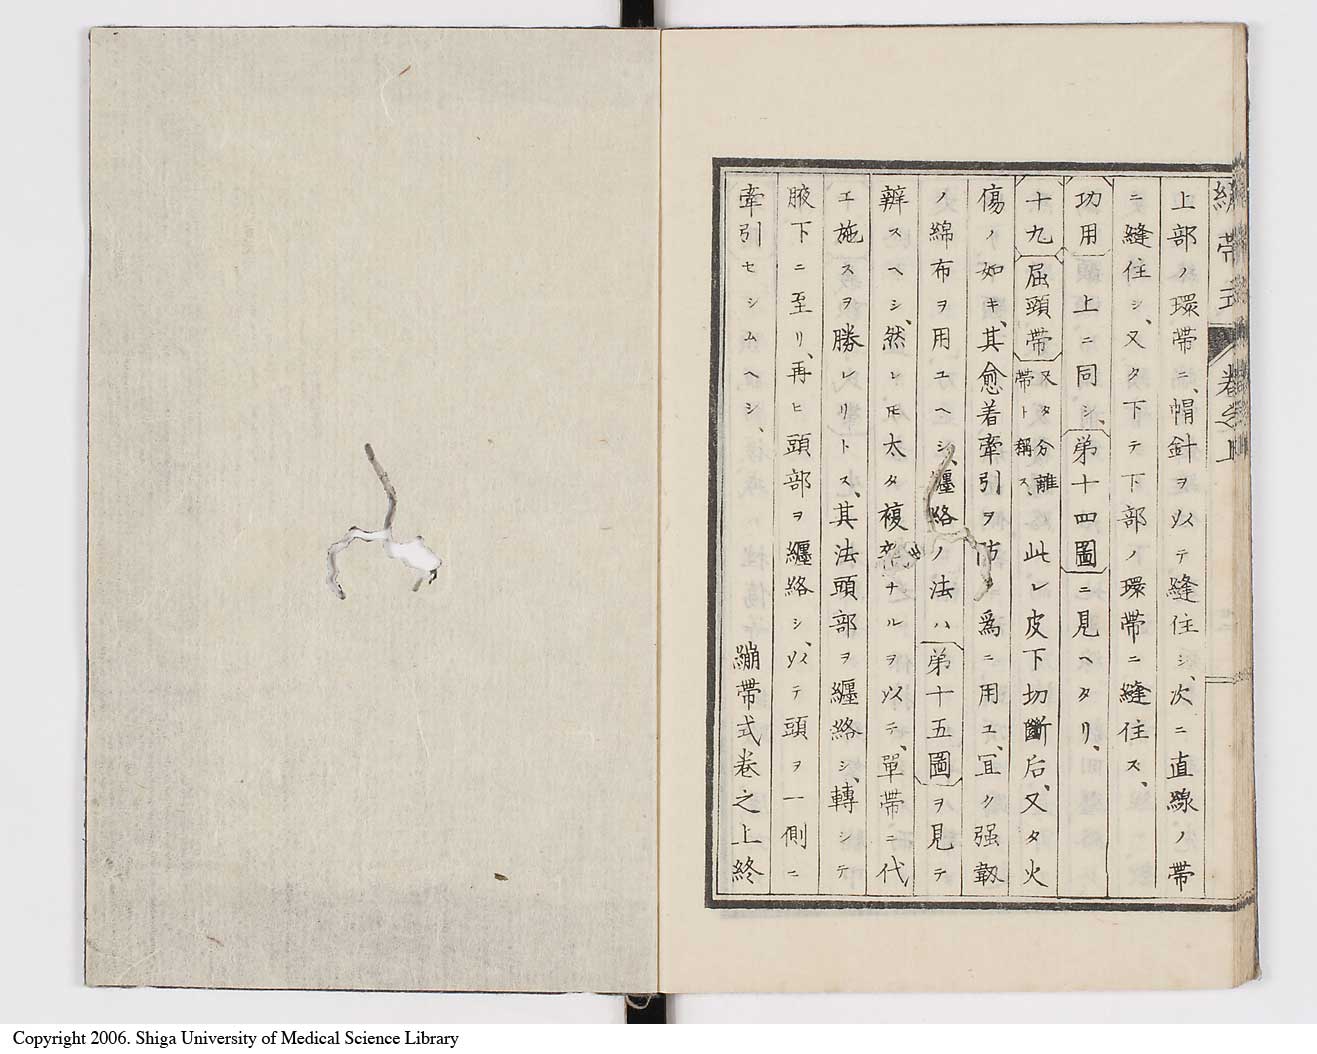 繃帶式 卷之上
上部ノ環帶ニ、帽針ヲ以テ縫住シ、次ニ直線ノ帶
ニ縫住シ、又タ下テ下部ノ環帶ニ縫住ス、
功用上ニ同シ、第十四圖ニ見ヘタリ、
十九屈頭帶又タ分離帶ト稱ス、此レ皮下切斷后、又タ火
傷ノ如キ、其愈着牽引ヲ防ク爲ニ用ユ、冝ク强靱
ノ綿布ヲ用ユヘシ、纏絡ノ法ハ第十五圖ヲ見テ
辨スヘシ、然レ𪜈太タ複雜ナルヲ以テ、單帶ニ代
エ施スヲ勝レリトス、其法頭部ヲ纏絡シ、轉シテ
腋下ニ至リ、再ヒ頭部ヲ纏絡シ、以テ頭ヲ一側ニ
牽引セシムヘシ、
繃帶式卷之上終
Copyright 2006. Shiga University of Medical Science Library